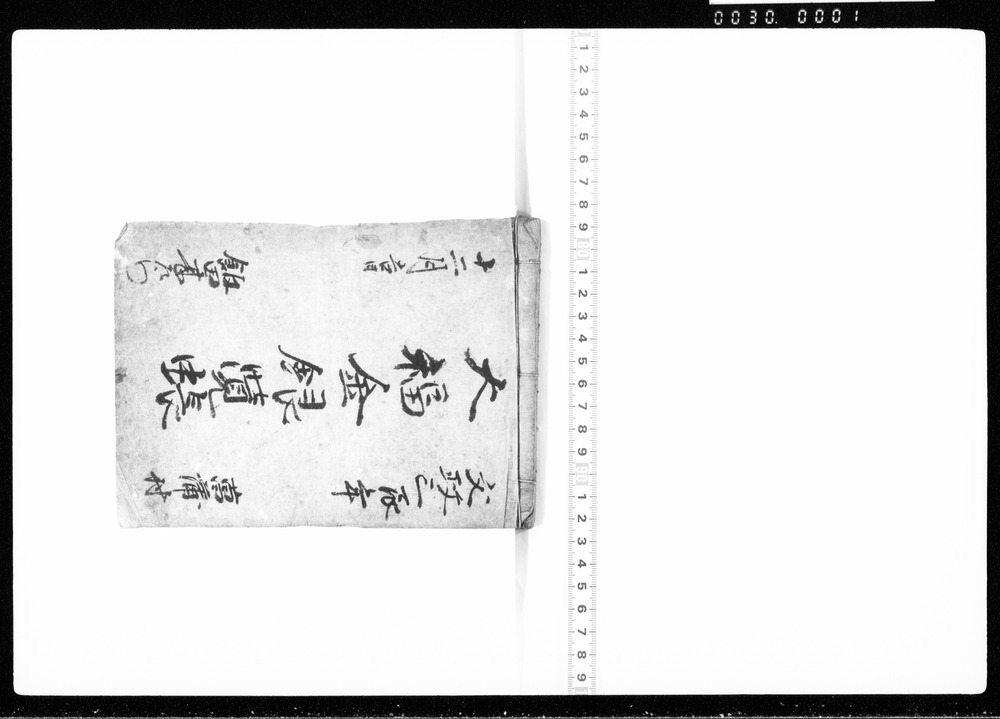 文政二卯年
大福金銀帳
十二月吉日
菖蒲村
0030.0001
1 2 3 4 5 6 7 8 9 80 1 2 3 4 5 6 7 8 9 90 1 2 3 4 5 6 7 8 9